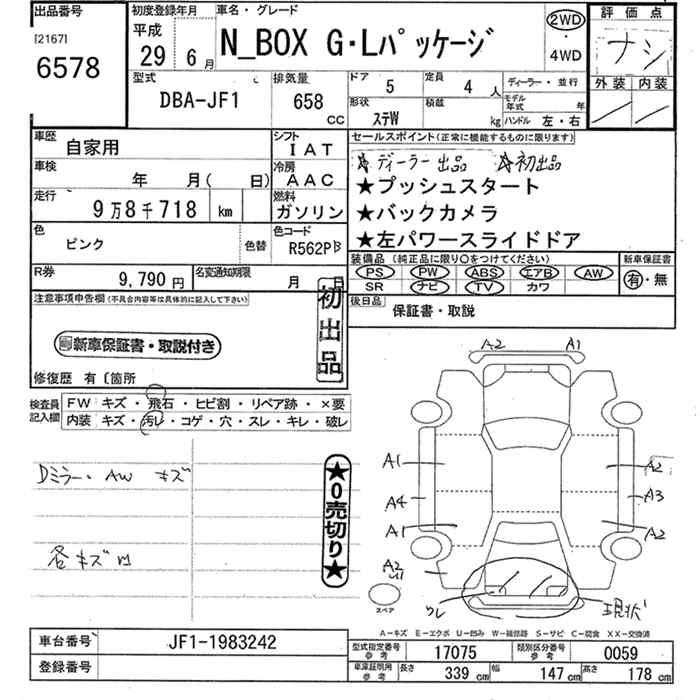 出品番号
[2167]
6578
初度登録年月
平成
29 6月
車名・グレード
N_BOX G・Lパッケージ
2WD
・
4WD
評価点
ナシ
外装 内装
型式
DBA-JF1
排気量
658
cc
ドア
5
定員
4 人
ディーラー・並行
形状
ステW
積載
kg
モデル年式 年
ハンドル 左・右
車歴
自家用
シフト
IAT
車検
年 月( 日)
冷房
AAC
走行
9万8千718 km
燃料
ガソリン
色
ピンク
色替
色コード
R562P
R券
9,790円
名変通知期限
月 日
セールスポイント(正常に機能するものに限ります)
★ディーラー出品 ☆初出品
★プッシュスタート
★バックカメラ
★左パワースライドドア
装備品(純正品に限り○をつけてください)
PS PW ABS エアB AW
SR ナビ TV カワ
新車保証書
有・無
後日品
保証書・取説
注意事項申告欄(不具合内容等は具体的に記入して下さい)
新車保証書・取説付き
初出品
修復歴 有〔箇所
検査員記入欄
FW キズ・飛石・ヒビ割・リペア跡・×要
内装 キズ・汚レ・コゲ・穴・スレ・キレ・破レ
Dミラー・AW キズ
各キズ
★0売切り★
A2 A1
A1 A2
A4 A3
A1 A2
A2
U1
スペア
現状
A-キズ E-エクボ U-凹み W-補修跡 S-サビ C-腐食 XX-交換済
車台番号
JF1-1983242
登録番号
型式指定番号
参考
17075
類別区分番号
参考
0059
車庫証明用
参考
長さ 339 cm 幅 147 cm 高さ 178 cm